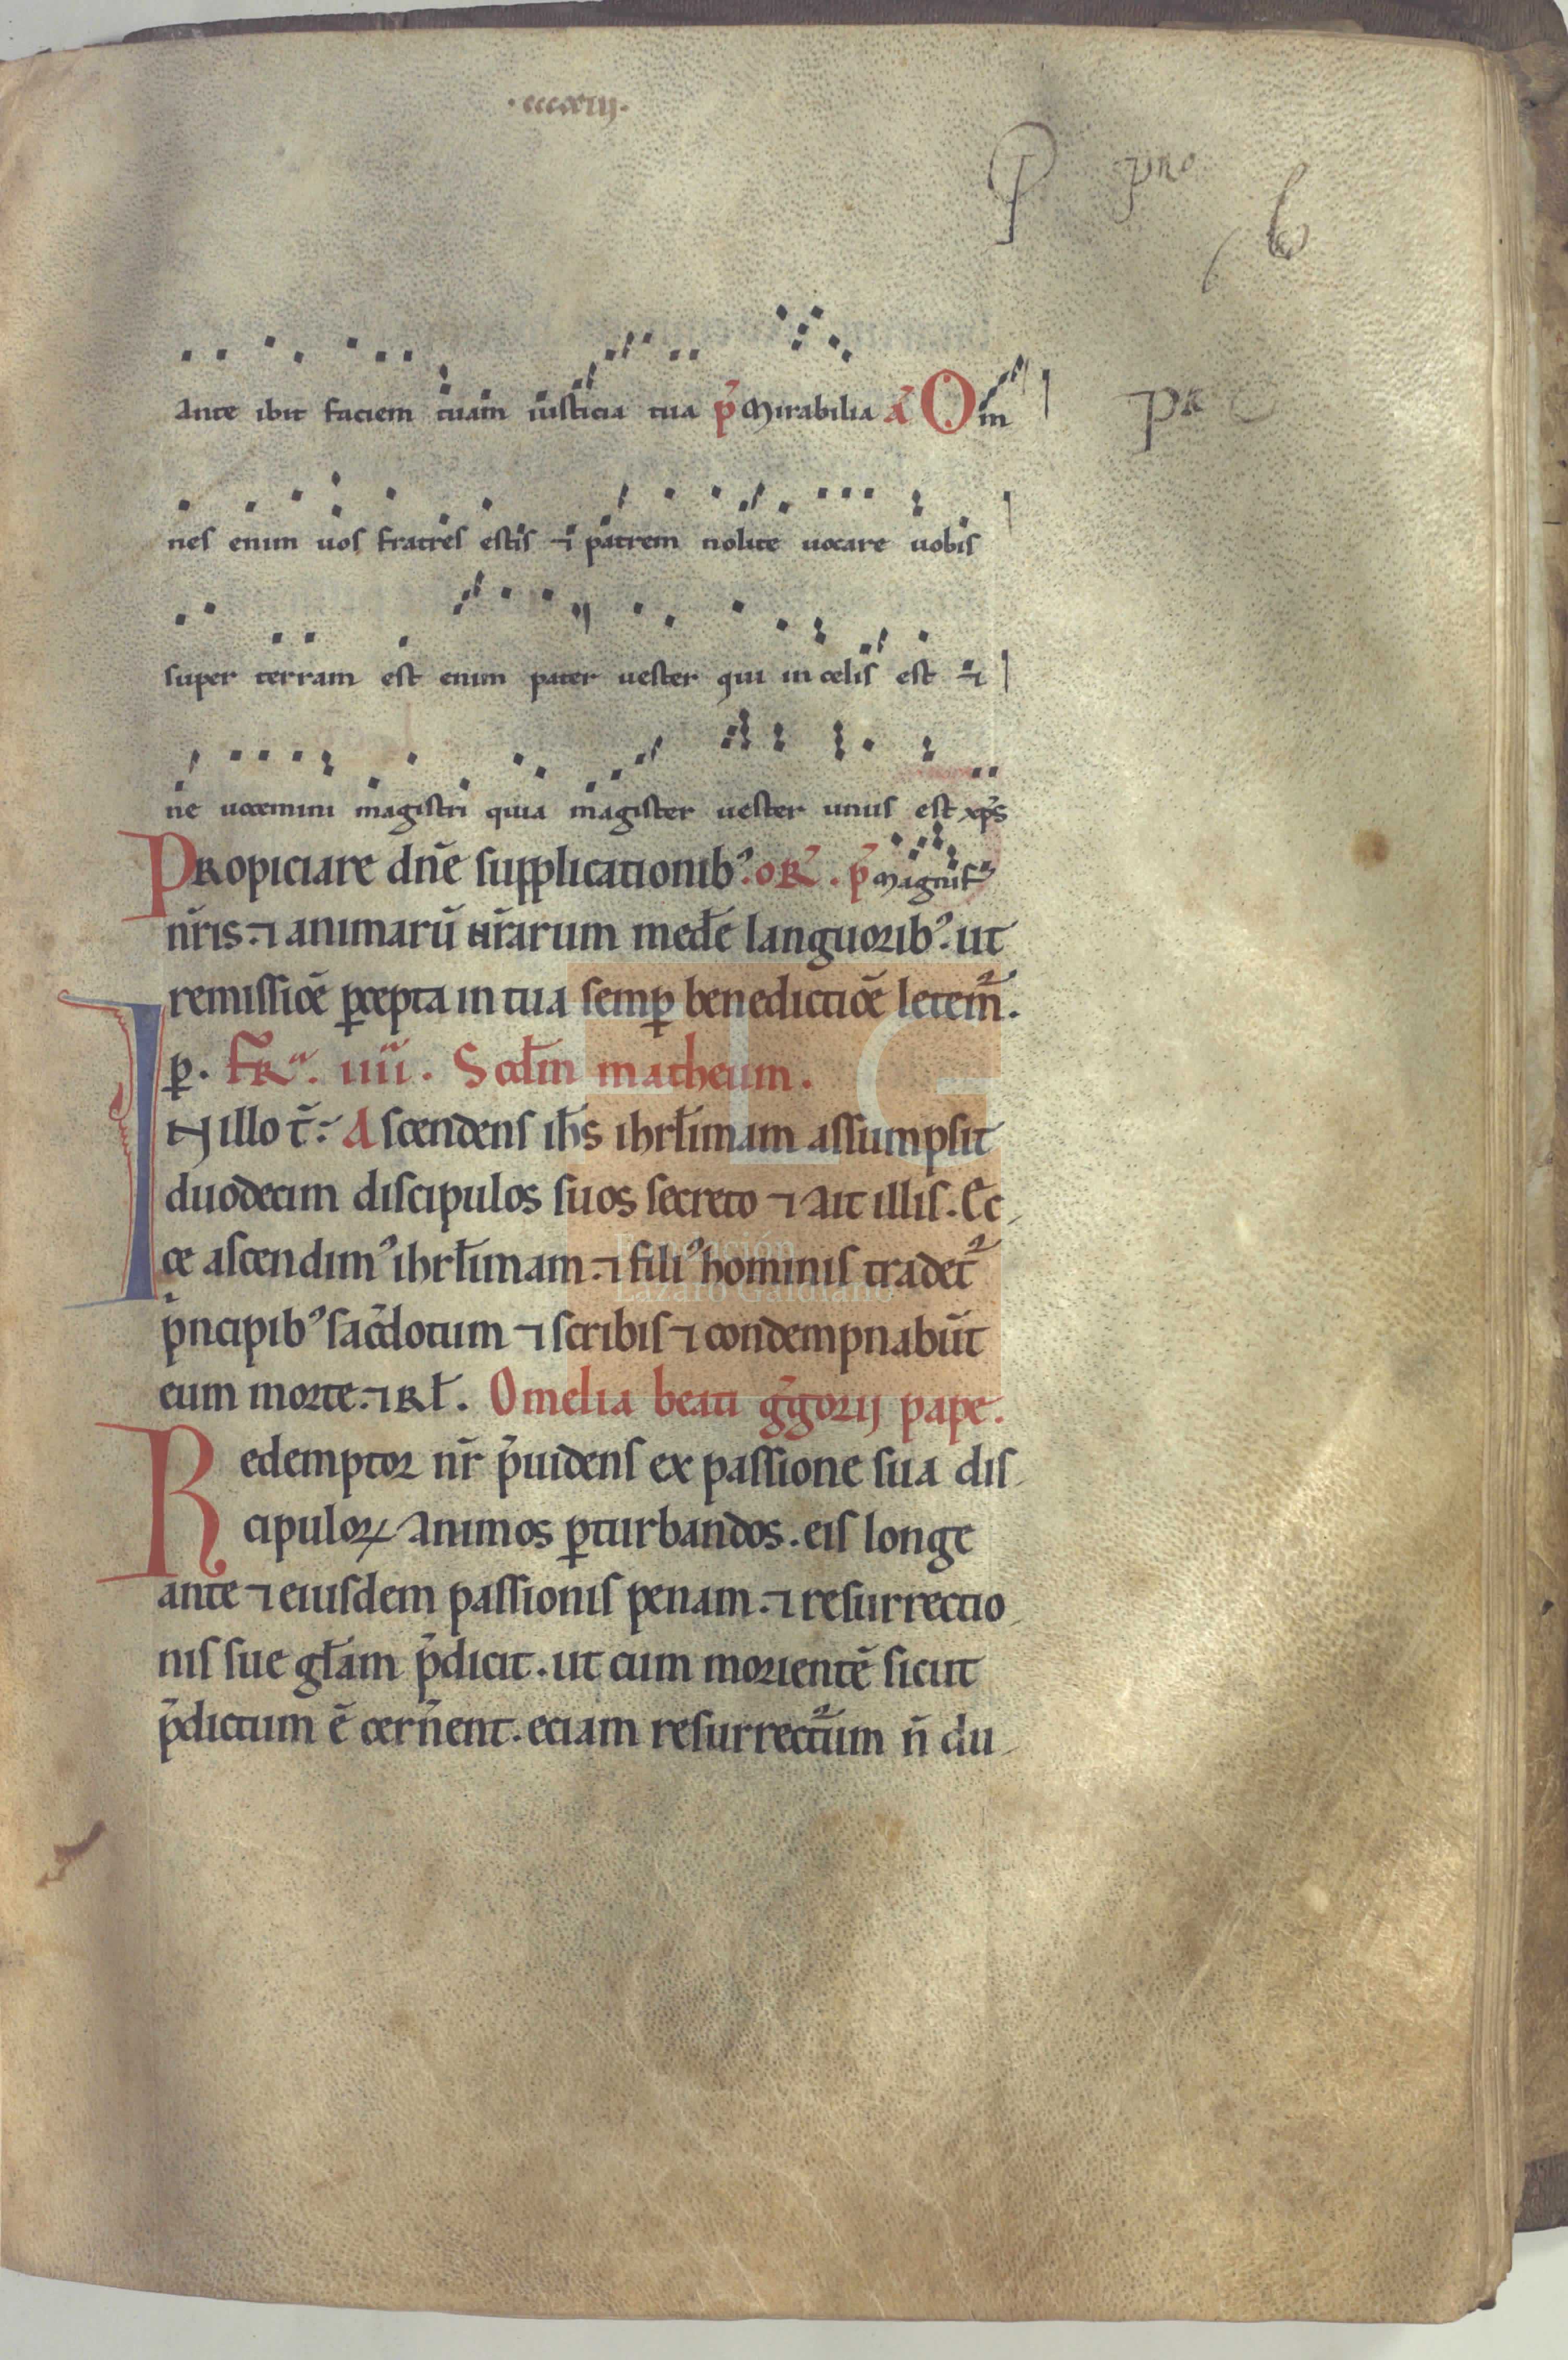 ·ccccxiij·
P pro
b
Ante ibit faciem tuam iusticia tua p̄ Mirabilia aᷓ Om
pr
nes enim uos fratres estis ⁊ patrem nolite uocare uobis
super terram est enim pater uester qui in celis est ⁊
ne uocemini magistri quia magister uester unus est xp̄s
PRopiciare dn̄e supplicationibꝰ. oR̄. p̄ Magnif
nr̄is. ⁊ animarū nr̄arum med̄e languoribꝰ. ut
remissiōe ꝑcepta in tua semꝑ benedictiōe letem̄.
ꝑ. FR̄ᵃ. iiii. Scd̄m matheum.
IN illo t̄. Ascendens ih̄s ihrl̄imam assumpsit
duodecim discipulos suos secreto ⁊ ait illis. Ec
ce ascendimꝰ ihrl̄imam. ⁊ filiꝰ hominis tradet᷑
p̄ncipibꝰ sac̄dotum ⁊ scribis ⁊ condempnabūt
eum morte. ⁊ Rl̄. Omelia beati ḡgorij pape.
Redemptor nr̄ p̄uidens ex passione sua dis
cipuloꝝ animos ꝑturbandos. eis longe
ante ⁊ eiusdem passionis penam. ⁊ resurrectio
nis sue gl̄am p̄dicit. ut cum morientē sicut
p̄dictum ē cern̄ent. eciam resurrect᷑um n̄ du
FLG
Fundación
Lázaro Galdiano